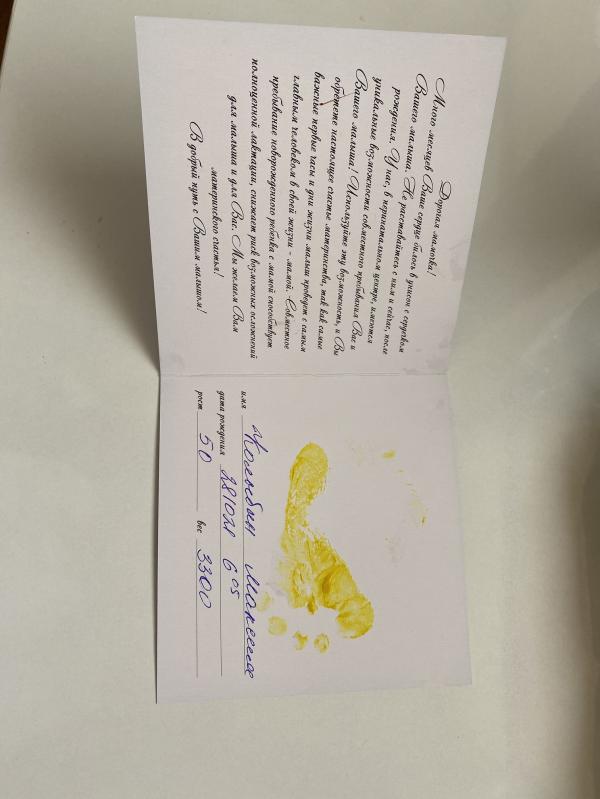 Дорогая мамочка!
Много месяцев Ваше сердце билось в унисон с сердечком
Вашего малыша. Не расставайтесь с ним и сейчас, после
рождения. У нас, в перинатальном центре, имеются
уникальные возможности совместного пребывания Вас и
Вашего малыша! Используйте эту возможность, и Вы
обретете настоящее счастье материнства, так как самые
важные первые часы и дни жизни малыш проведет с самым
главным человеком в своей жизни - мамой. Совместное
пребывание новорожденного ребенка с мамой способствует
полноценной лактации, снижает риск возможных осложнений
для малыша и для Вас. Мы желаем Вам
материнского счастья!
В добрый путь с Вашим малышом!
имя
дата рождения 281021 6 05
рост 50 вес 3300